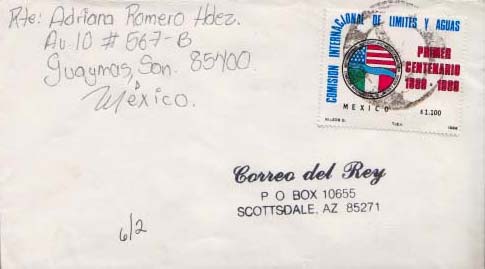 Rte: Adriana Romero Hdez.
Av. 10 # 567-B
Guaymas, Son. 85400
México.
COMISION INTERNACIONAL DE LIMITES Y AGUAS
PRIMER
CENTENARIO
1889 - 1989
MEXICO $1,100
TIEV 1989
Correo del Rey
P O BOX 10655
SCOTTSDALE, AZ 85271
6/2